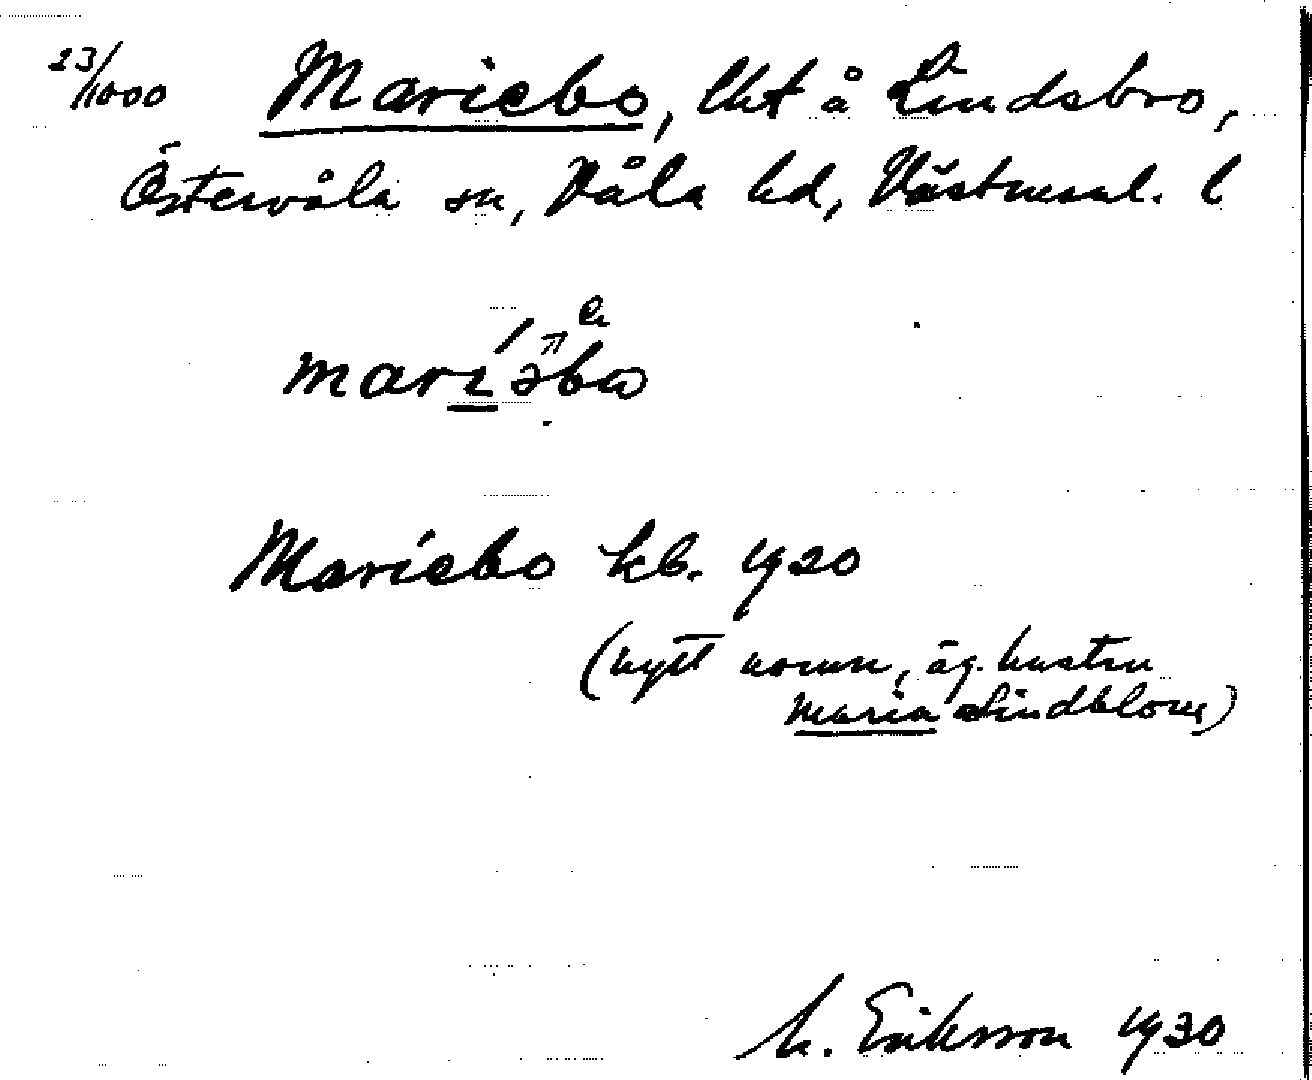 23/1000 Mariebo, lht å Lindsbro,
Östervåla sn, Våla hd, Västmanl. l
mariəbω
Mariebo kb. 1920
(nytt namn, äg. hustru
Maria Lindblom)
M. Eriksson 1930